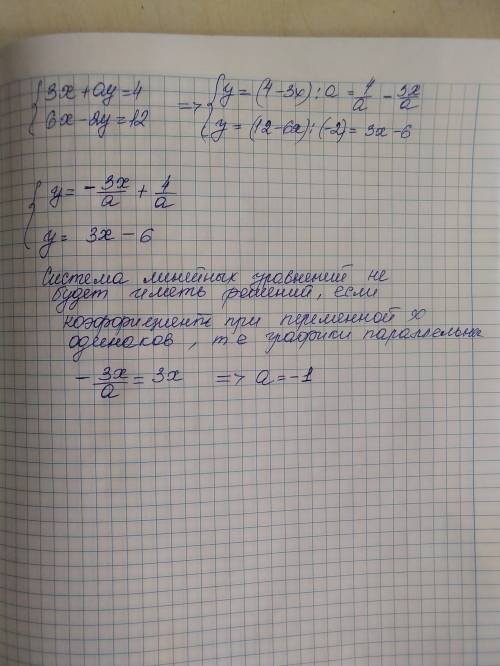 { 3x + ay = 4 => { y = (4-3x):a = 4/a - 3x/a
{ 6x - 2y = 12 { y = (12-6x):(-2) = 3x - 6
{ y = - 3x/a + 4/a
{ y = 3x - 6
Система линейных уравнений не
будет иметь решений, если
коэффициент при переменной x
одинаков, т е графики параллельны
- 3x/a = 3x => a = -1